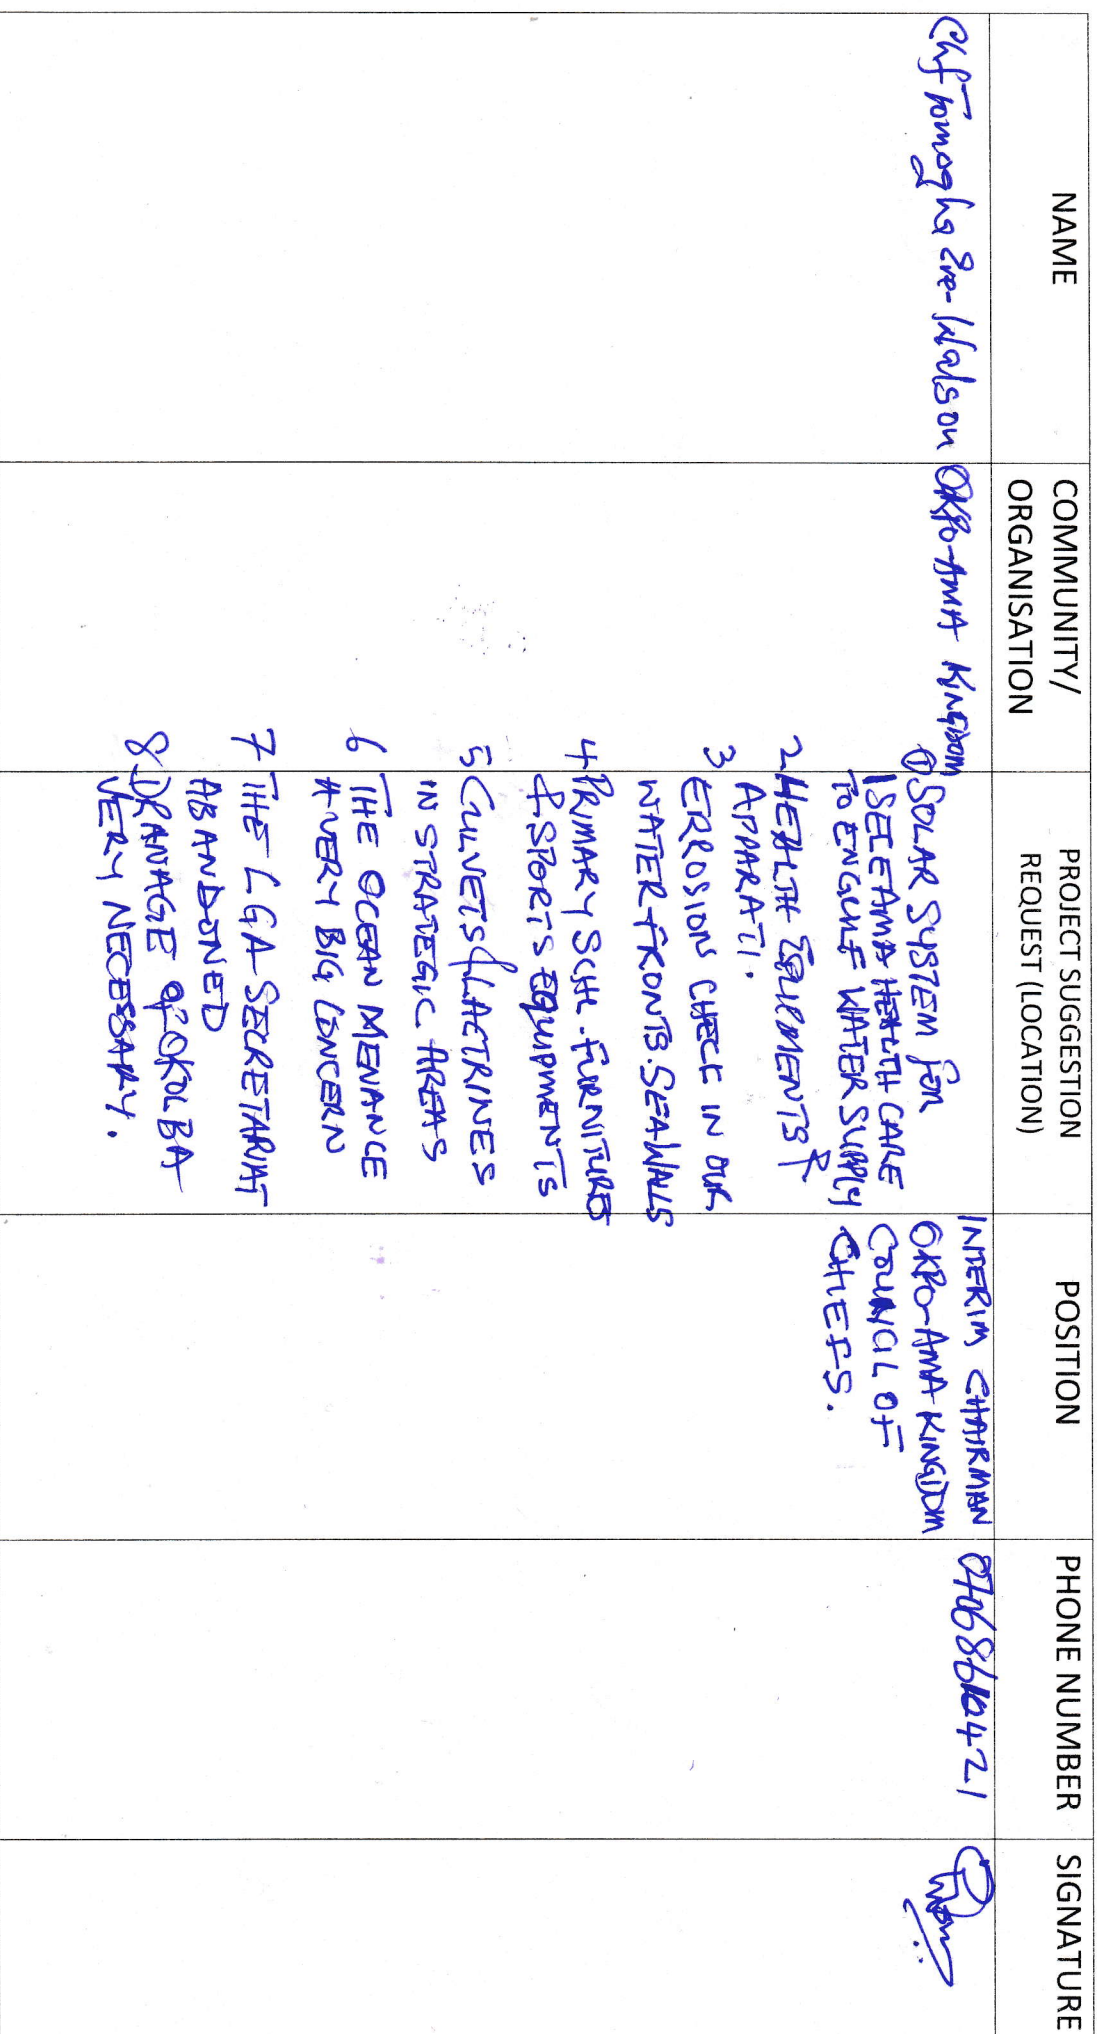 NAME
COMMUNITY/
ORGANISATION
PROJECT SUGGESTION
REQUEST (LOCATION)
POSITION
PHONE NUMBER
SIGNATURE
Chf Tomogha Ere-Walson
OKPO-AMA KINGDOM
① SOLAR SYSTEM for
1 SELEAMA HEALTH CARE
TO ENGULF WATER SUPPLY
2 HEALTH EQUIPMENTS &
APPARATI.
3 ERROSION CHECK IN OUR
WATER-FRONTS. SEAWALLS
4 PRIMARY SCHL. FURNITURES
& SPORTS EQUIPMENTS
5 CULVETS & LAETRINES
IN STRATEGIC AREAS
6 THE OCEAN MENANCE
A VERY BIG CONCERN
7 THE LGA SECRETARIAT
ABANDONED
8 DRANAGE OF OKOLBA
VERY NECESSARY.
INTERIM CHAIRMAN
OKPO-AMA KINGDOM
COUNCIL OF
CHIEFS.